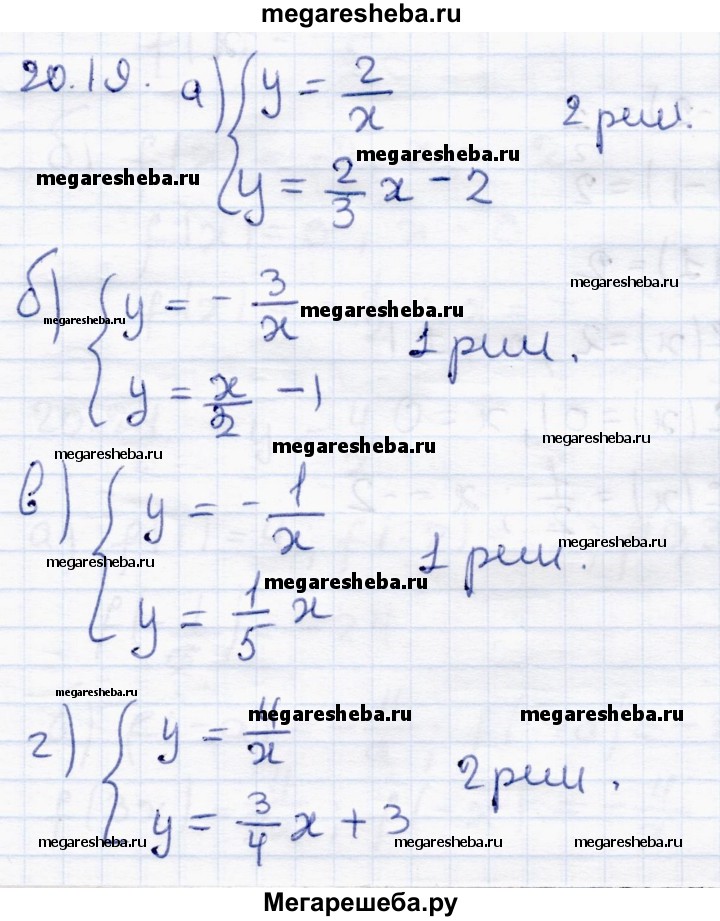 megaresheba.ru
20.19. а) { y = 2/x 2 реш.
megaresheba.ru
megaresheba.ru
y = 2/3 x - 2
megaresheba.ru
б) { y = - 3/x 1 реш.
megaresheba.ru
megaresheba.ru
y = x/2 - 1
megaresheba.ru
megaresheba.ru
megaresheba.ru
в) { y = - 1/x 1 реш.
megaresheba.ru
megaresheba.ru
megaresheba.ru
y = 1/5 x
megaresheba.ru
г) { y = 4/x 2 реш.
megaresheba.ru
megaresheba.ru
y = 3/4 x + 3
megaresheba.ru
megaresheba.ru
megaresheba.ru
Мегарешеба.ру